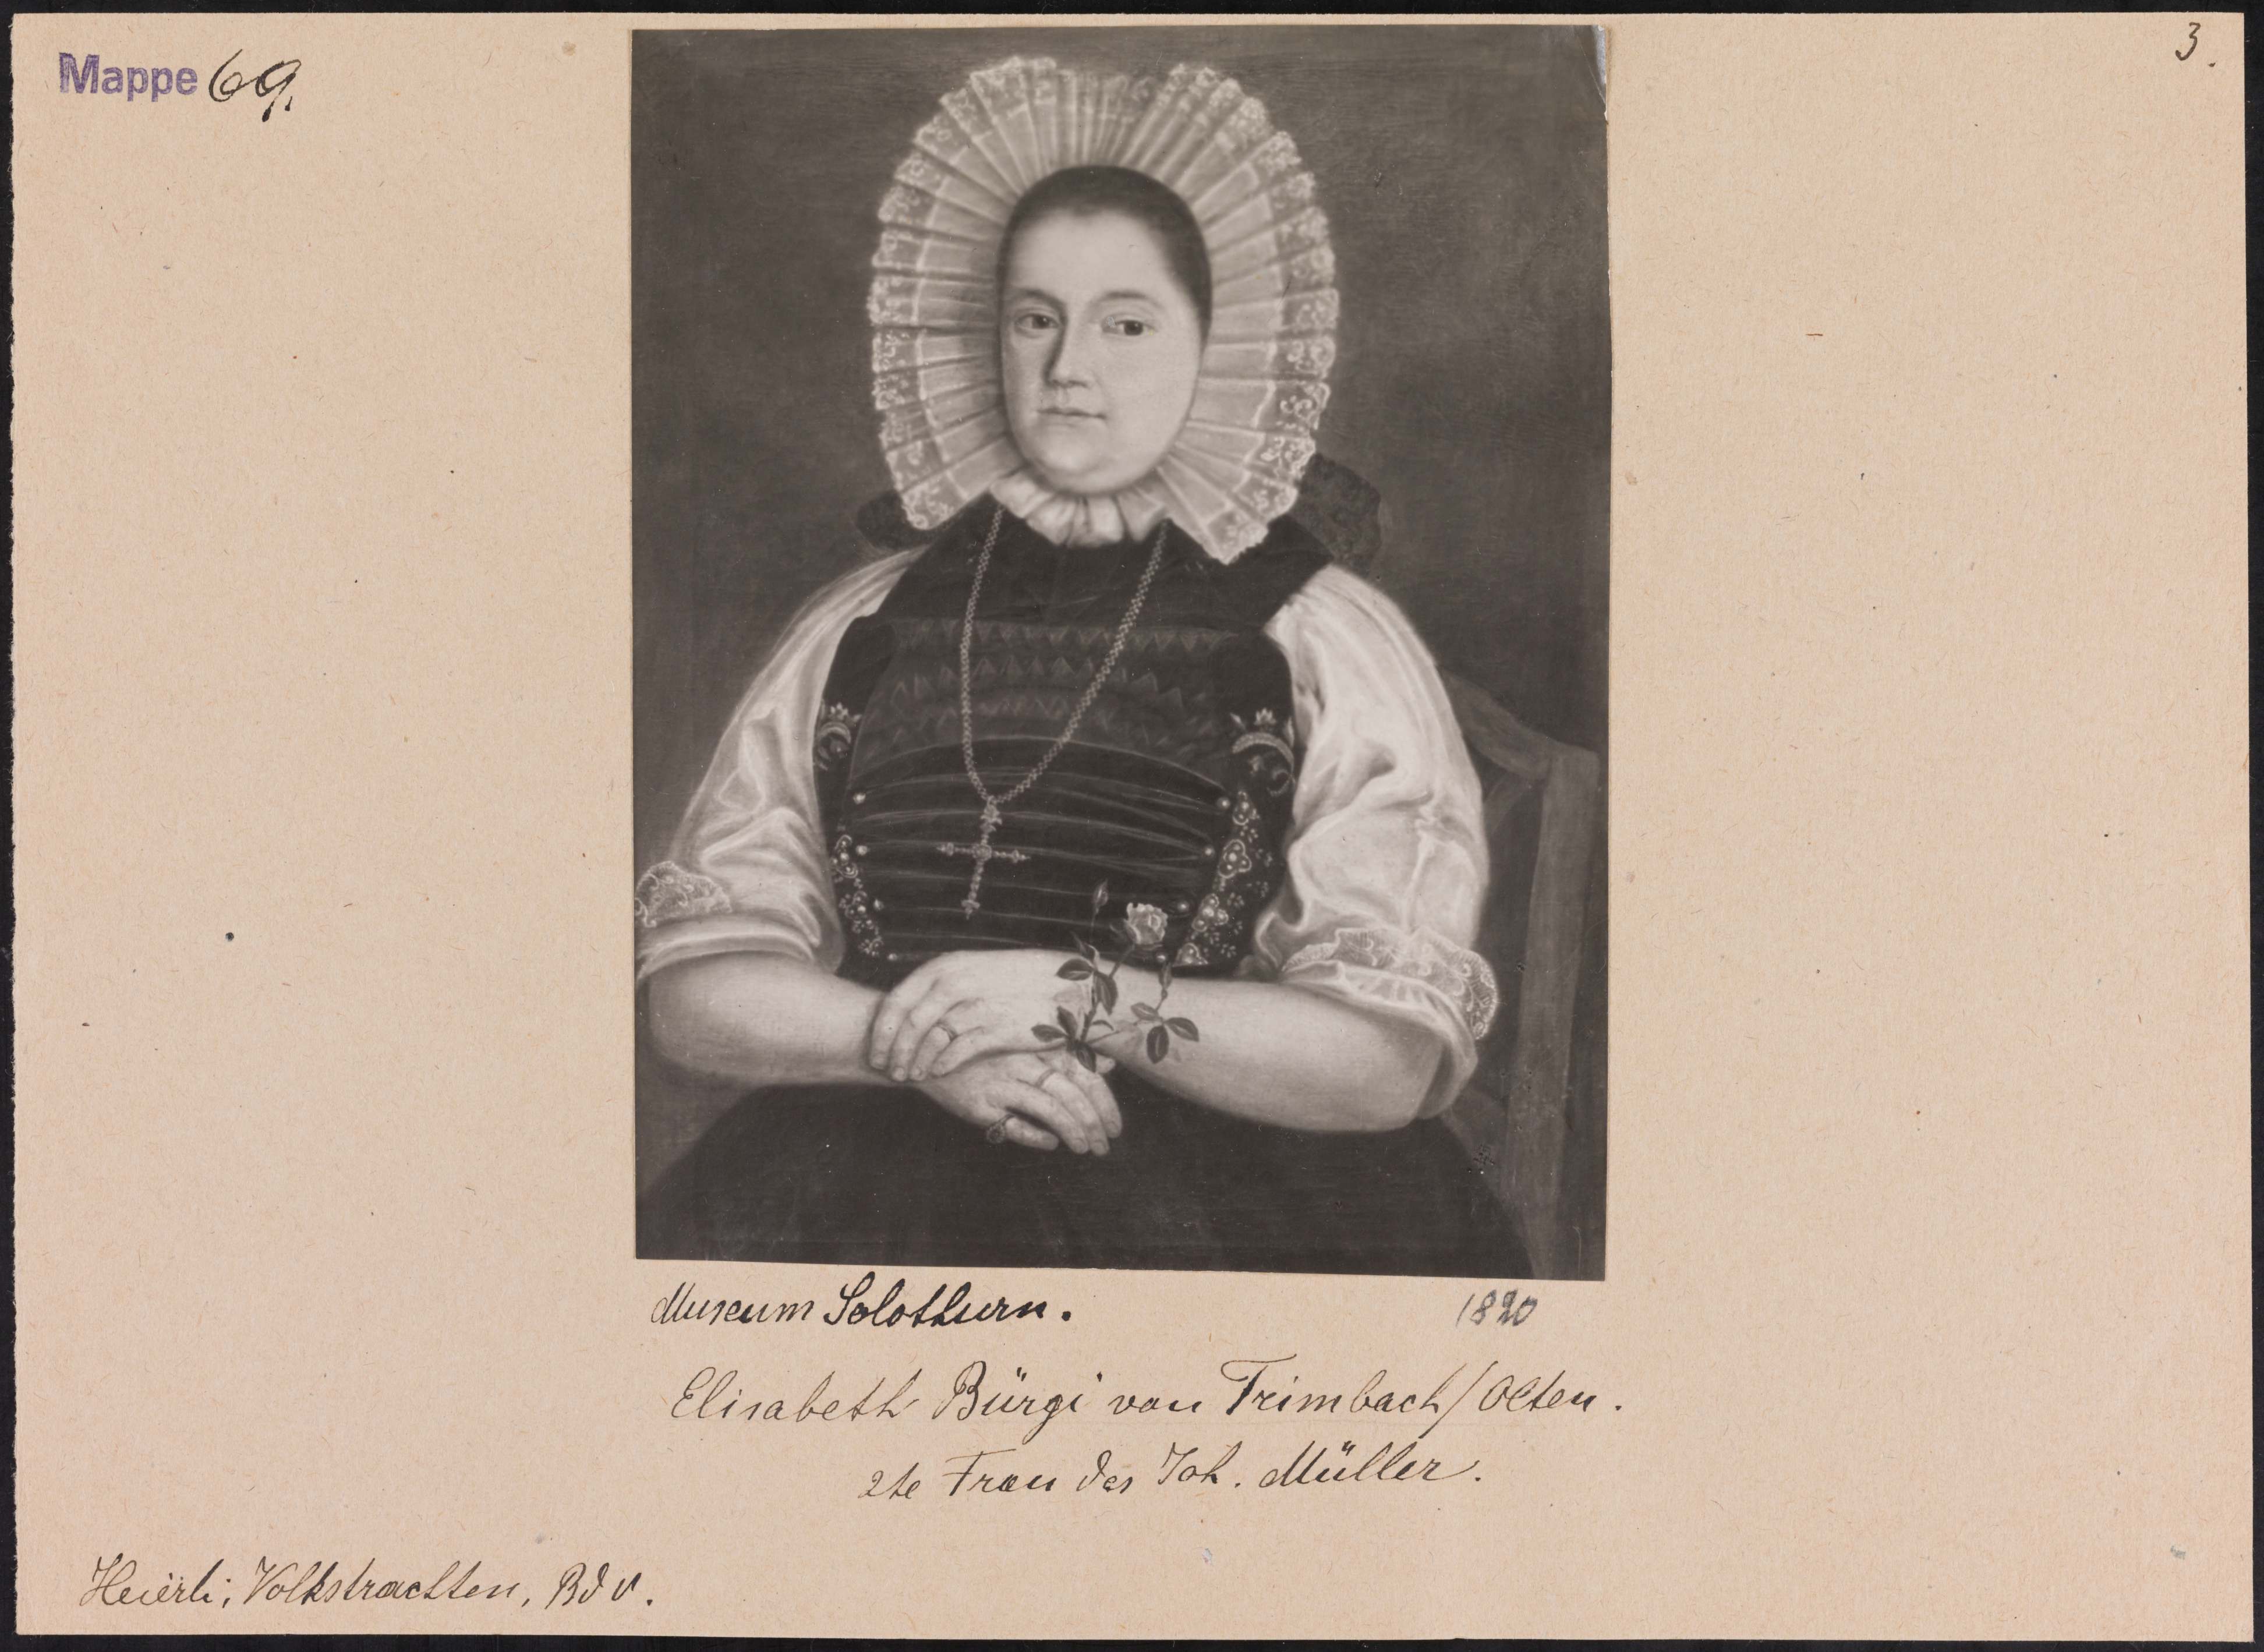 Mappe 69.
3.
Museum Solothurn.
1820
Elisabeth Bürgi von Trimbach/Olten.
2te Frau des Joh. Müller.
Heierli; Volkstrachten, Bd V.